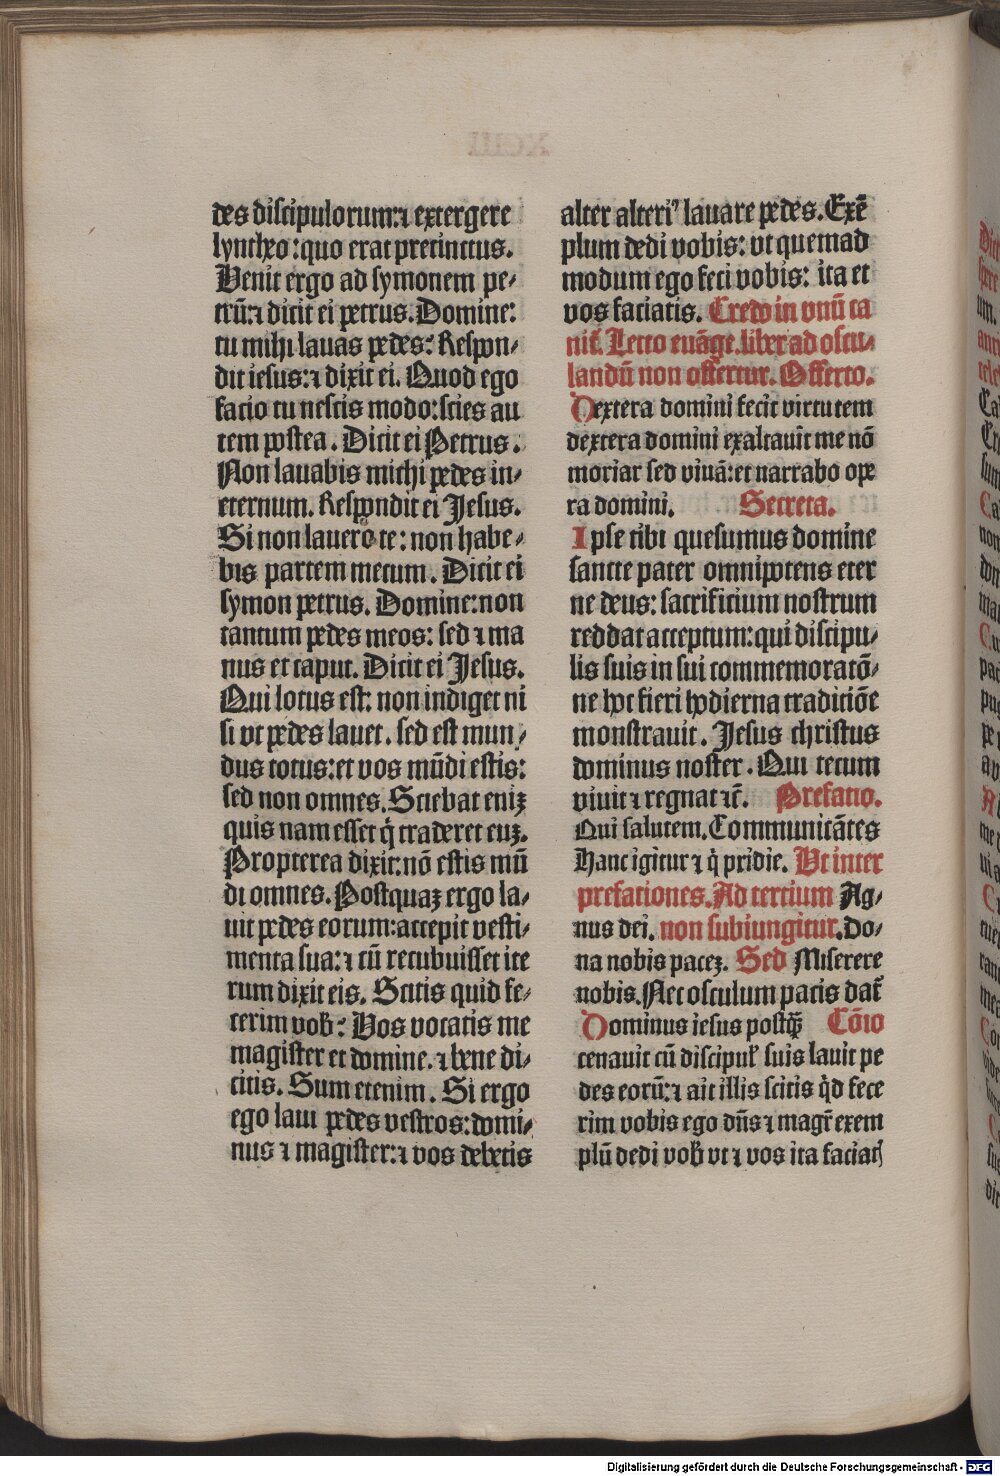 des discipulorum:⁊ extergere
lyntheo:quo erat precinctus.
Venit ergo ad symonem pe⸗
trū:⁊ dicit ei petrus.Domine:
tu mihi lauas pedes: Respon⸗
dit iesus:⁊ dixit ei. Quod ego
facio tu nescis modo:scies au
tem postea. Dicit ei Petrus.
Non lauabis michi pedes in⸗
eternum. Respondit ei Jesus.
Si non lauero te: non habe⸗
bis partem mecum. Dicit ei
symon petrus. Domine:non
tantum pedes meos: sed ⁊ ma
nus et caput. Dicit ei Jesus.
Qui lotus est: non indiget ni
si vt pedes lauet. sed est mun⸗
dus totus:et vos mūdi estis:
sed non omnes. Sciebat eniꝫ
quis nam esset q̄ traderet euꝫ.
Propterea dixit:nō estis mū
di omnes. Postquaꝫ ergo la⸗
uit pedes eorum:accepit vesti⸗
menta sua:⁊ cū recubuisset ite
rum dixit eis. Scitis quid fe⸗
cerim vob̄: Vos vocatis me
magister et domine.⁊ bene di⸗
citis. Sum etenim. Si ergo
ego laui pedes vestros:domi⸗
nus ⁊ magister:⁊ vos debetis
alter alteri⁹ lauare pedes.Exē
plum dedi vobis: vt quemad
modum ego feci vobis: ita et
vos faciatis. Credo in vnū ca
nit̄. Lecto euāge.liber ad oscu⸗
landū non offertur. Offerto.
Dextera domini fecit virtutem
dextera domini exaltauit me nō
moriar sed viuā:et narrabo ope
ra domini. Secreta.
Ipse tibi quesumus domine
sancte pater omnipotens eter
ne deus: sacrificium nostrum
reddat acceptum:qui discipu⸗
lis suis in sui commemoratō⸗
ne hoc fieri hodierna traditiōe
monstrauit. Jesus christus
dominus noster. Qui tecum
viuit ⁊ regnat ⁊c̄. Prefatio.
Qui salutem.Communicātes
Hanc igitur ⁊ q̄ pridie. Vt inter
prefationes.Ad tercium Ag⸗
nus dei. non subiungitur.Do⸗
na nobis paceꝫ. Sed Miserere
nobis.Nec osculum pacis dat̄
Dominus iesus postꝙ̄ Cōio
cenauit cū discipul̄ suis lauit pe
des eorū:⁊ ait illis scitis q̄d fece
rim vobis ego dn̄s ⁊ magr̄ exem
plū dedi vob̄ vt ⁊ vos ita faciatꝭ
Digitalisierung gefördert durch die Deutsche Forschungsgemeinschaft - DFG